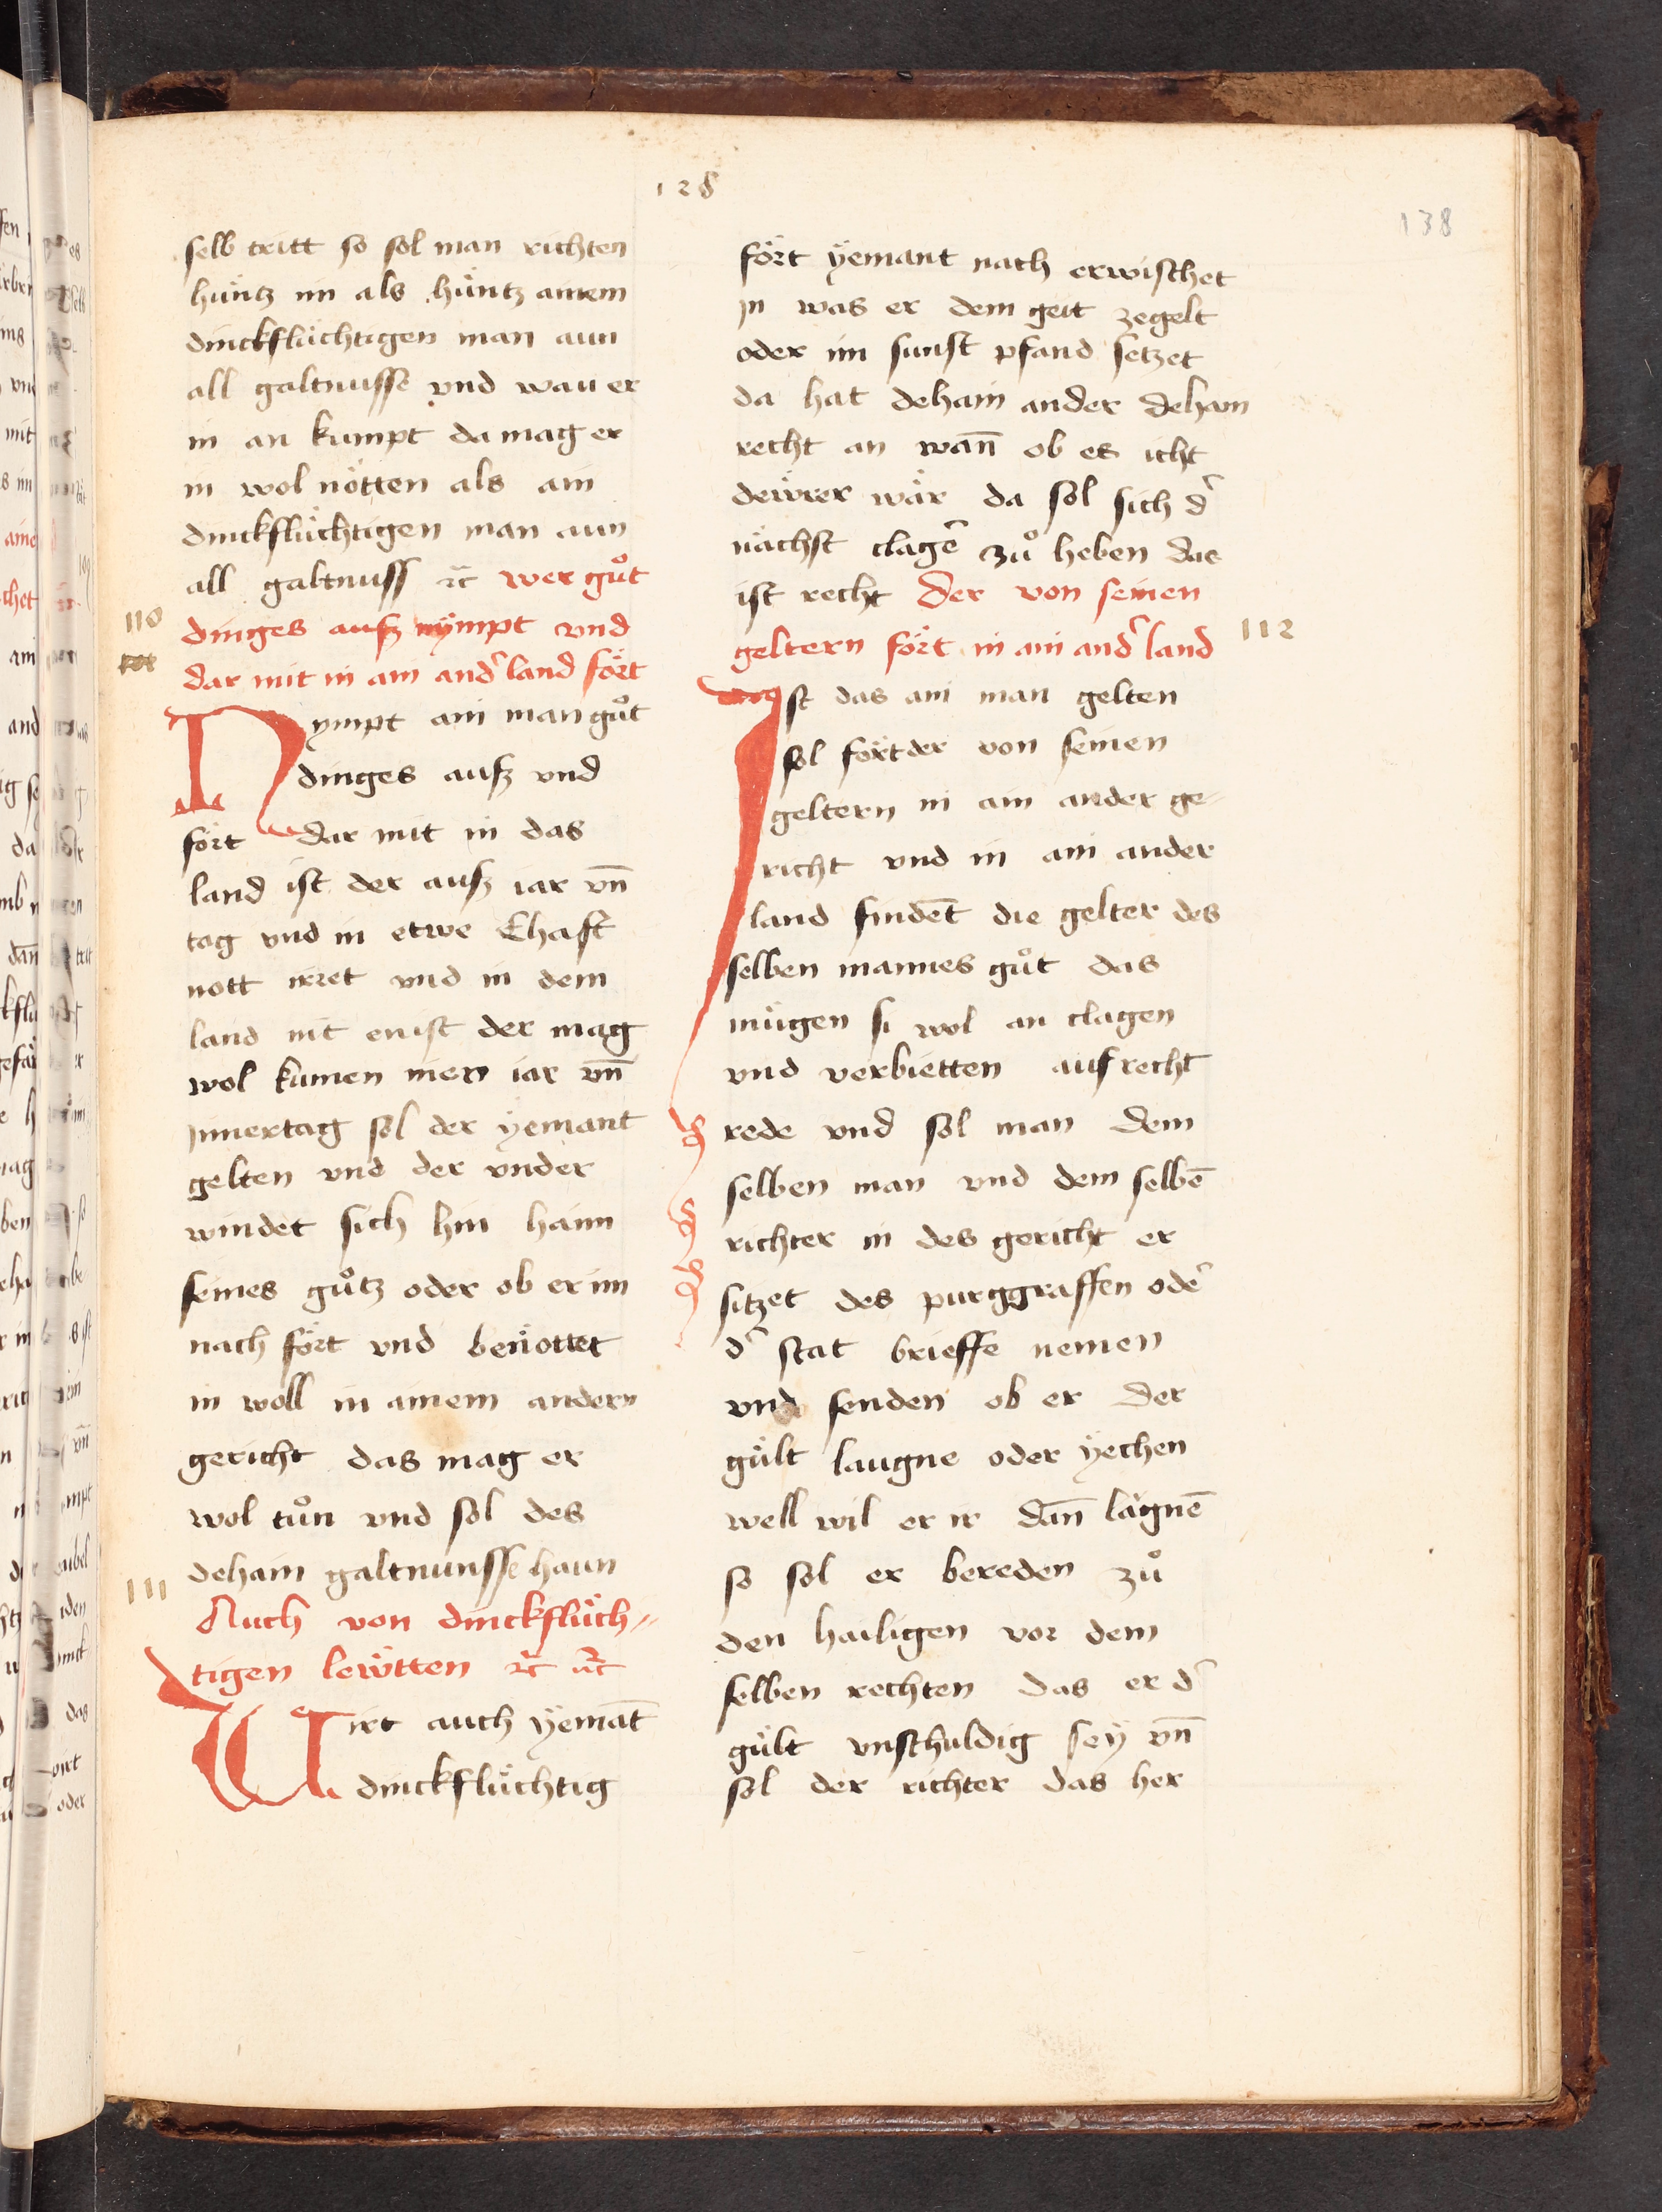 128
138
selb tritt so sol man richten
hüntz im als hüntz ainem
dinckflüchtigen man aun
all galtnusse vnd wau er
in an kumpt da mag er
in wol nötten als ain
dinckflüchtigen man aun
all galtnuss ꝛc̃ wer gůt
110
dinges ausz nÿmpt vnd
dar mit in ain and̾ land fört
Nympt ain man gůt
dinges ausz vnd
fört dar mit in das
land ist der ausz iar vn̄
tag vnd in etwe Ehaft
nott irret vnd in dem
land nit enist der mag
wol kumen inen iar vn̄
Innertag sol der ÿemant
gelten vnd der vnder
windet sich hin haim
seines gůtz oder ob er im
nach fört vnd benöttet
in woll in ainem andern
gericht das mag er
wol tůn vnd sol des
dehain galtnunsse haun
111
Auch von dinckflüch⸗
tigen lewtten ꝛc̃ ꝛc̃
Wirt auch ÿemāt
dinckflüchtig
fört ÿemant nach erwischet
In was er dem geit zegelt
oder im sunst pfand setzet
da hat dehain ander dehain
recht an wan̄ ob es icht
dewrer wär da sol sich d̾
nächst clagē zů heben das
ist recht Der von seinen
geltern fört in ain and̾ land
112
Ist das ain man gelten
sol förtder von seinen
geltern in ain ander ge⸗
richt vnd in ain ander
land findēt die gelter des
selben mannes gůt das
mügen si wol an clagen
vnd verbietten auf recht
rede vnd sol man dem
selben man vnd dem selbē
richter in des gericht er
sitzet des purggraffen ode̾
d̾ stat brieffe nemen
vnd senden ob er der
gült laugne oder ÿechen
well wil er ir dan̄ lägnē
so sol er bereden zů
den hailigen vor dem
selben rechten das er d̾
gült vnschuldig seÿ vn̄
sol der richter das her